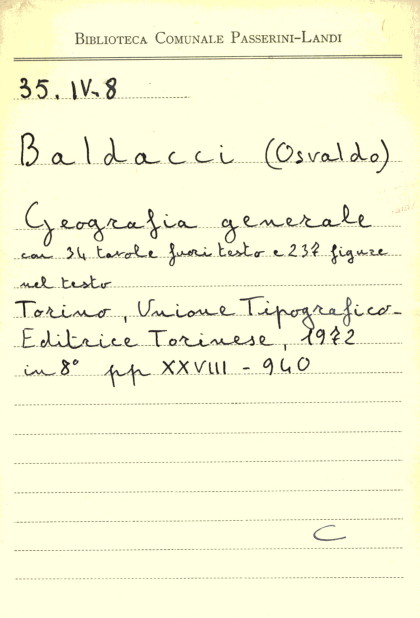 BIBLIOTECA COMUNALE PASSERINI-LANDI
35. IV-8
Baldacci (Osvaldo)
Geografia generale
con 34 tavole fuori testo e 237 figure
nel testo
Torino, Unione Tipografico-
Editrice Torinese, 1972
in 8° pp XXVIII - 940
C